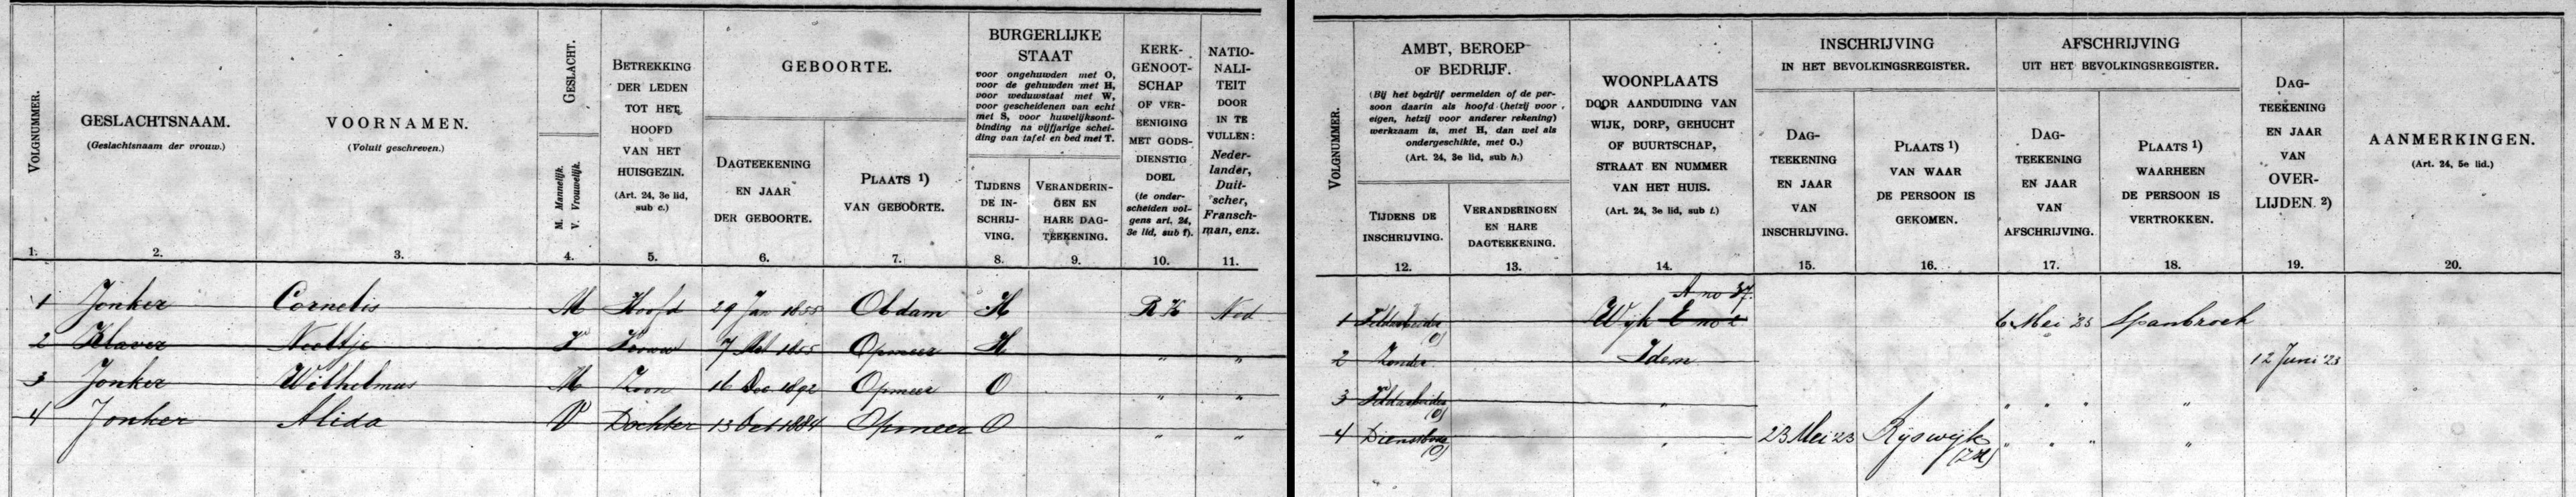 VOLGNUMMER.
GESLACHTSNAAM.
(Geslachtsnaam der vrouw.)
VOORNAMEN.
(Voluit geschreven.)
GESLACHT.
M. Mannelijk.
V. Vrouwelijk.
BETREKKING
DER LEDEN
TOT HET
HOOFD
VAN HET
HUISGEZIN.
(Art. 24, 3e lid,
sub c.)
GEBOORTE.
DAGTEEKENING
EN JAAR
DER GEBOORTE.
PLAATS 1)
VAN GEBOORTE.
BURGERLIJKE
STAAT
voor ongehuwden met O,
voor de gehuwden met H,
voor weduwstaat met W,
voor gescheidenen van echt
met S, voor huwelijksont-
binding na vijfjarige schei-
ding van tafel en bed met T.
TIJDENS
DE IN-
SCHRIJ-
VING.
VERANDERIN-
GEN EN
HARE DAG-
TEEKENING.
KERK-
GENOOT-
SCHAP
OF VER-
EENIGING
MET GODS-
DIENSTIG
DOEL
(te onder-
scheiden vol-
gens art. 24,
3e lid, sub f).
NATIO-
NALI-
TEIT
DOOR
IN TE
VULLEN:
Neder-
lander,
Duit-
scher,
Fransch-
man, enz.
1. 2. 3. 4. 5. 6. 7. 8. 9. 10. 11.
1 Jonker Cornelis M Hoofd 29 Jan 1855 Obdam H R K Ned
2 Klaver Neeltje V Vrouw 7 1855 Opmeer H " "
3 Jonker Wilhelmus M Zoon 16 Dec 1892 Opmeer O " "
4 Jonker Alida V Dochter 13 Oct 1884 Opmeer O " "
VOLGNUMMER.
AMBT, BEROEP
OF BEDRIJF.
(Bij het bedrijf vermelden of de per-
soon daarin als hoofd (hetzij voor
eigen, hetzij voor anderer rekening)
werkzaam is, met H, dan wel als
ondergeschikte, met O.)
(Art. 24, 3e lid, sub h.)
TIJDENS DE
INSCHRIJVING.
VERANDERINGEN
EN HARE
DAGTEEKENING.
WOONPLAATS
DOOR AANDUIDING VAN
WIJK, DORP, GEHUCHT
OF BUURTSCHAP,
STRAAT EN NUMMER
VAN HET HUIS.
(Art. 24, 3e lid, sub i.)
INSCHRIJVING
IN HET BEVOLKINGSREGISTER.
DAG-
TEEKENING
EN JAAR
VAN
INSCHRIJVING.
PLAATS 1)
VAN WAAR
DE PERSOON IS
GEKOMEN.
AFSCHRIJVING
UIT HET BEVOLKINGSREGISTER.
DAG-
TEEKENING
EN JAAR
VAN
AFSCHRIJVING.
PLAATS 1)
WAARHEEN
DE PERSOON IS
VERTROKKEN.
DAG-
TEEKENING
EN JAAR
VAN
OVER-
LIJDEN. 2)
AANMERKINGEN.
(Art. 24, 5e lid.)
12. 13. 14. 15. 16. 17. 18. 19. 20.
A no 37.
1 Veldarbeider (O) Wijk E no 6 Mei '25 Spanbroek
2 Zonder Idem 12 Juni '23
3 Veldarbeider (O) " " " " "
4 Dienstbode (O) " 23 Mei '23 Rijswijk (ZH) " " " "